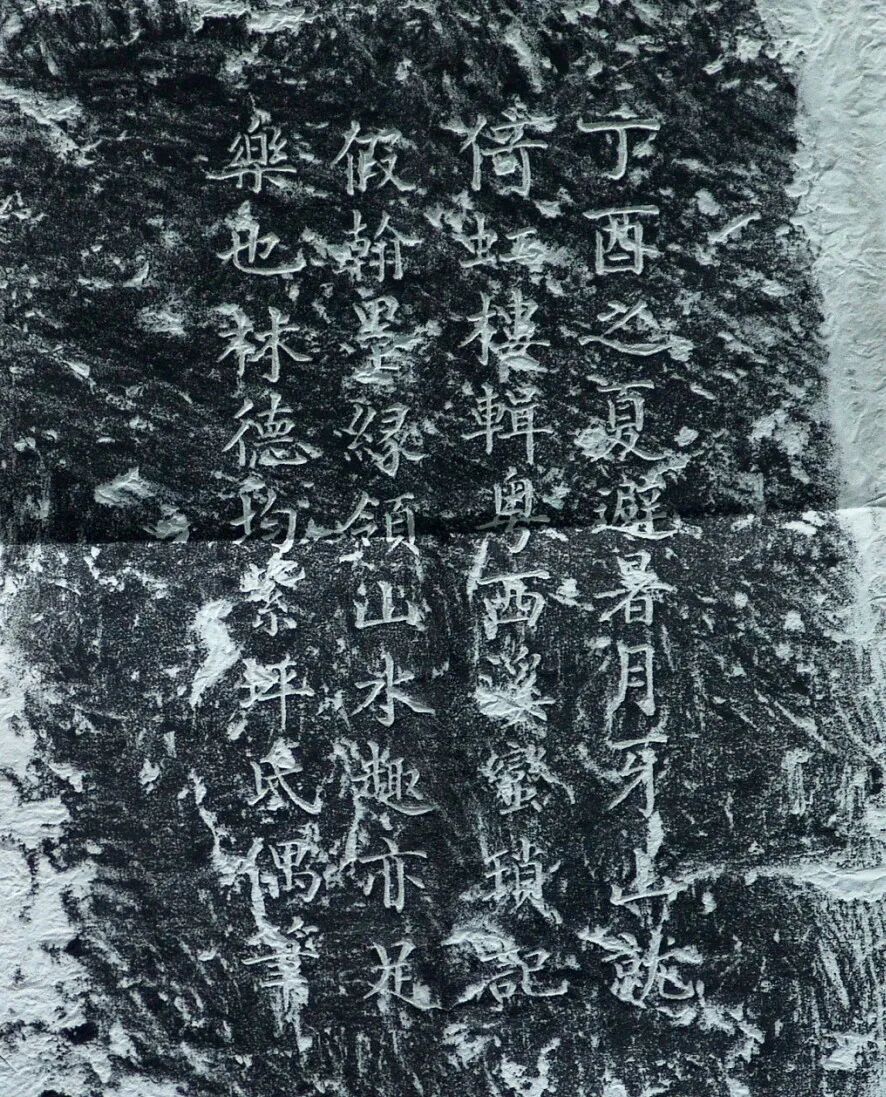 丁酉之夏避暑月牙山就
倚虹樓輯粵西溪蠻瑣記
假翰墨緣領山水趣亦足
樂也林德均紫坪氏偶筆